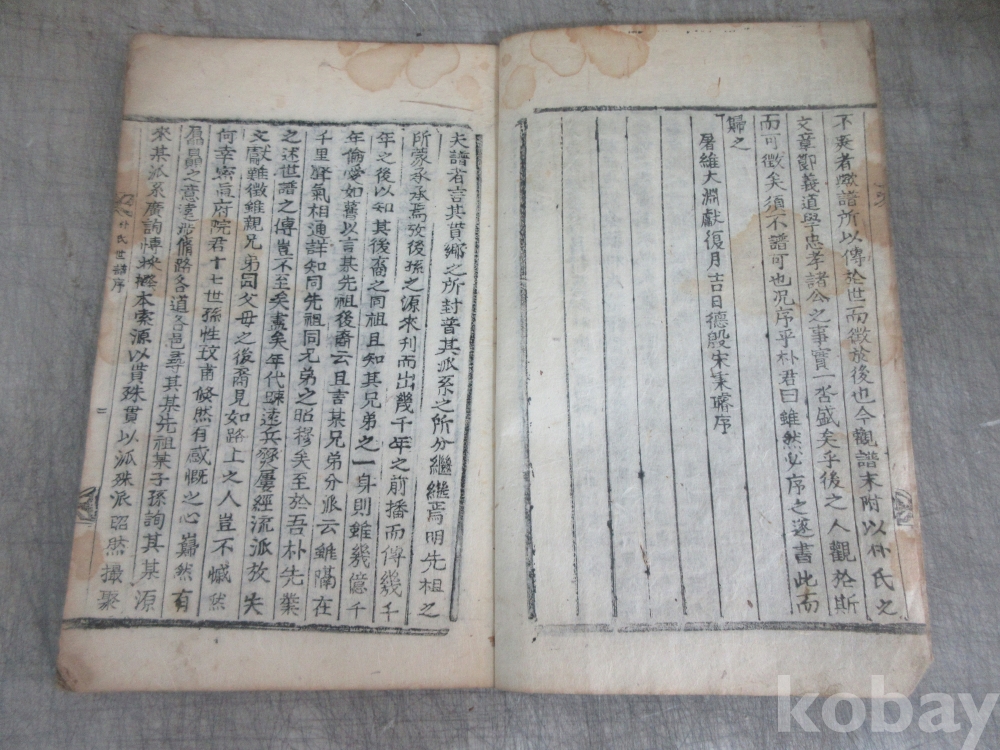 不爽者歟譜所以傳於世而徵於後也今觀譜末附以朴氏之
文章節義道學忠孝諸公之事實一否盛矣乎後之人觀於斯
而可徵矣須不譜可也況序乎朴君曰雖然必序之遂書此而
歸之
屠維大淵獻復月吉日德殷宋秉璿序
夫譜者言其貫鄉之所封普其派系之所分繼繼焉明先祖之
所蒙承承焉攷後孫之源來列而出幾千年之前播而傳幾千
年之後以知其後裔之同祖且知其兄弟之一身則雖幾億千
年倫愛如舊以言某先祖後裔云且言某兄弟分派云雖隔在
千里聲氣相通詳知同先祖同兄弟之昭穆矣至於吾朴先業
之述世譜之傳豈不至矣盡矣年代疎遠兵燹屢經流派放失
文獻雖徵雖親兄弟同父母之後裔見如路上之人豈不慨然
何幸密直府院君十七世孫性玟甫倏然有感慨之心巋然有
之意遠涉脩路各道各邑尋其某先祖某子孫詢其某源
來某派系廣詢博採本索源以貫殊貫以派殊派昭然撮聚
朴氏世譜序
二
kobay